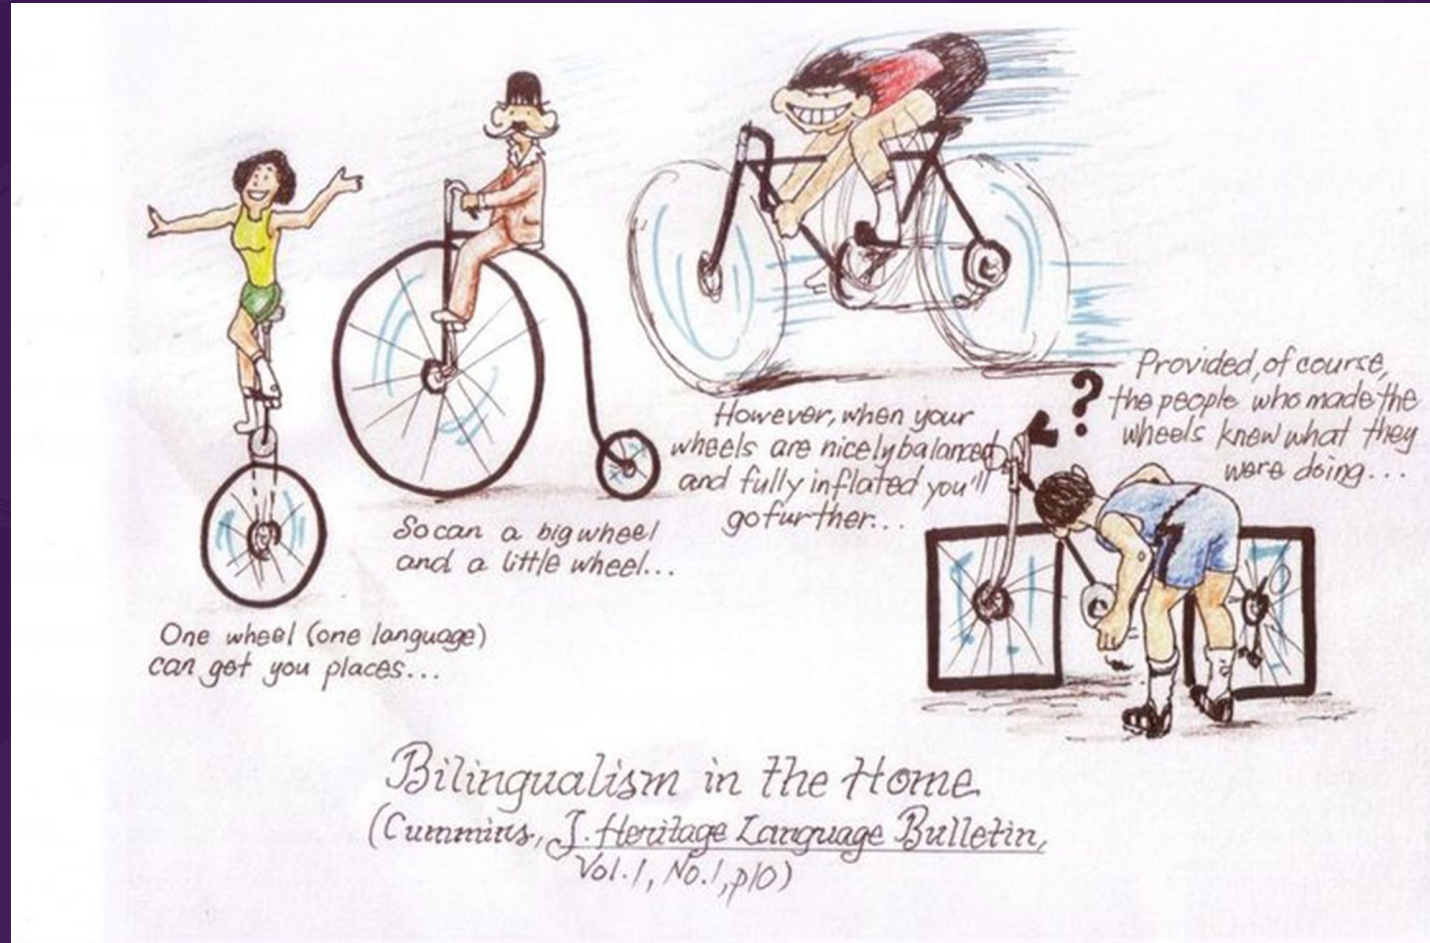 One wheel (one language)
can get you places...
So can a big wheel
and a little wheel...
However, when your
wheels are nicely balanced
and fully inflated you'll
go further...
?
Provided, of course,
the people who made the
wheels knew what they
were doing...
Bilingualism in the Home
(Cummins, J. Heritage Language Bulletin,
Vol.1, No.1, p10)